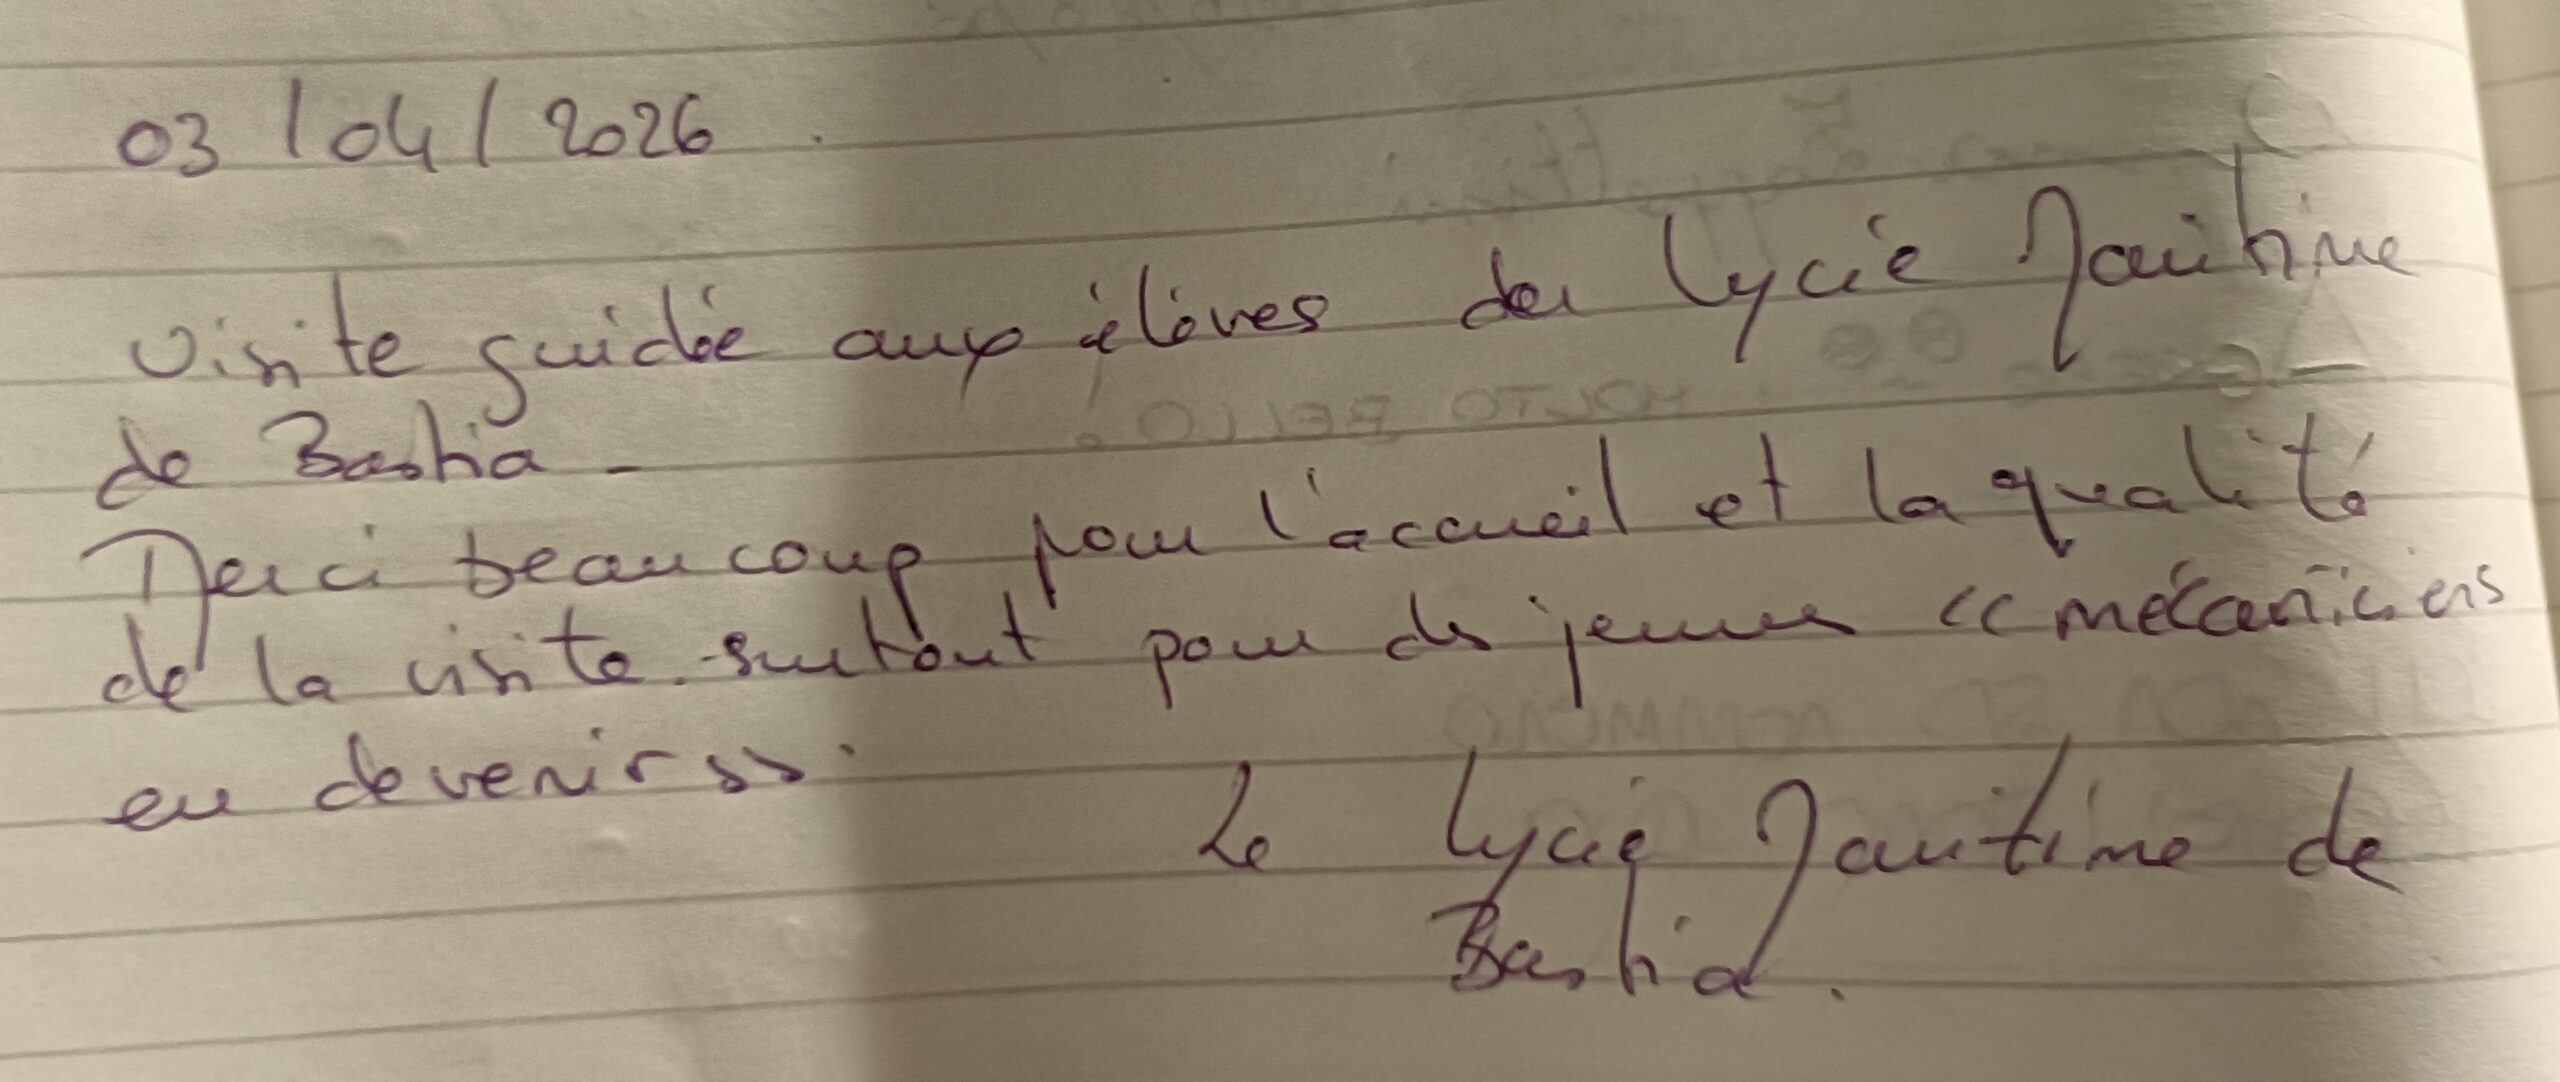 03/04/2026.
Visite guidée aux élèves du Lycée Maritime
de Bastia -
Merci beaucoup pour l'accueil et la qualité
de la visite surtout pour des jeunes « mécaniciens
en devenir ».
Le Lycée Maritime de
Bastia.